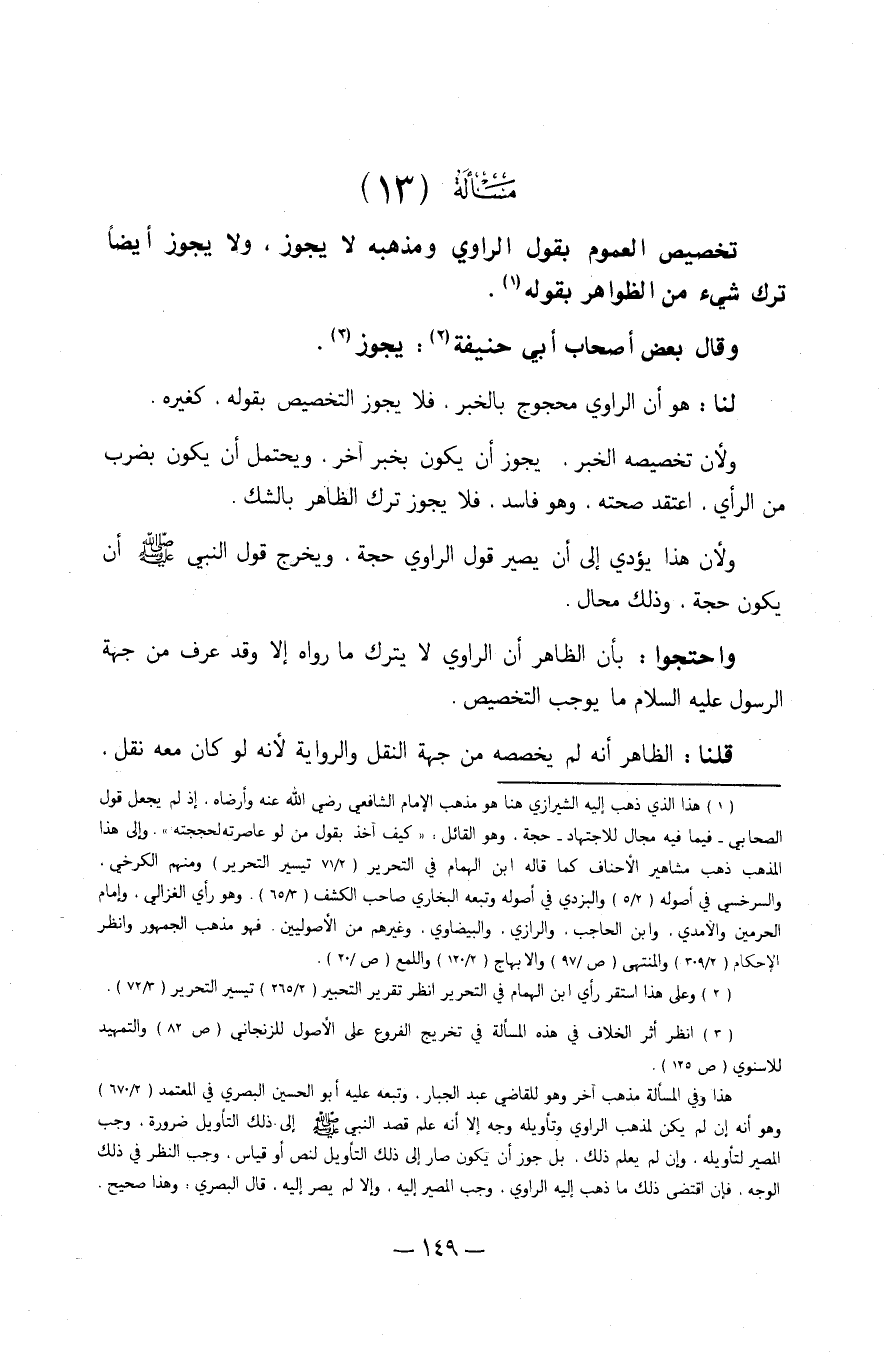 مسألة (١٣)
تخصيص العموم بقول الراوي ومذهبه لا يجوز ، ولا يجوز أيضاً
ترك شيء من الظواهر بقوله(١) .
وقال بعض أصحاب أبي حنيفة(٢) : يجوز(٣) .
لنا : هو أن الراوي محجوج بالخبر ، فلا يجوز التخصيص بقوله ، كغيره .
ولأن تخصيصه الخبر ، يجوز أن يكون بخبر آخر ، ويحتمل أن يكون بضرب
من الرأي ، اعتقد صحته ، وهو فاسد ، فلا يجوز ترك الظاهر بالشك .
ولأن هذا يؤدي إلى أن يصير قول الراوي حجة ، ويخرج قول النبي ﷺ أن
يكون حجة ، وذلك محال .
واحتجوا : بأن الظاهر أن الراوي لا يترك ما رواه إلا وقد عرف من جهة
الرسول عليه السلام ما يوجب التخصيص .
قلنا : الظاهر أنه لم يخصصه من جهة النقل والرواية لأنه لو كان معه نقل ،
( ١ ) هذا الذي ذهب إليه الشيرازي هنا هو مذهب الإمام الشافعي رضي الله عنه وأرضاه ، إذ لم يجعل قول
الصحابي ـ فيما فيه مجال للاجتهاد ـ حجة ، وهو القائل : « كيف آخذ بقول من لو عاصرته لحججته » . وإلى هذا
المذهب ذهب مشاهير الأحناف كما قاله ابن الهمام في التحرير ( ٧١/٢ تيسير التحرير ) ومنهم الكرخي ،
والسرخسي في أصوله ( ٥/٢ ) والبزدي في أصوله وتبعه البخاري صاحب الكشف ( ٦٥/٣ ) . وهو رأي الغزالي ، وإمام
الحرمين والآمدي ، وابن الحاجب ، والرازي ، والبيضاوي ، وغيرهم من الأصوليين . فهو مذهب الجمهور وانظر
الإحكام ( ٣٠٩/٢ ) والمنتهى ( ص /٩٧ ) والابهاج ( ١٢٠/٢ ) واللمع ( ص /٢٠ ) .
( ٢ ) وعلى هذا استقر رأي ابن الهمام في التحرير انظر تقرير التحبير ( ٢٦٥/٢ ) تيسير التحرير ( ٧٢/٣ ) .
( ٣ ) انظر أثر الخلاف في هذه المسألة في تخريج الفروع على الأصول للزنجاني ( ص ٨٢ ) والتمهيد
للاسنوي ( ص ١٢٥ ) .
هذا وفي المسألة مذهب آخر وهو للقاضي عبد الجبار ، وتبعه عليه أبو الحسين البصري في المعتمد ( ٦٧٠/٢ )
وهو أنه إن لم يكن لمذهب الراوي وتأويله وجه إلا أنه علم قصد النبي ﷺ إلى ذلك التأويل ضرورة ، وجب
المصير لتأويله ، وإن لم يعلم ذلك ، بل جوز أن يكون صار إلى ذلك التأويل لنص أو قياس ، وجب النظر في ذلك
الوجه ، فإن اقتضى ذلك ما ذهب إليه الراوي ، وجب المصير إليه ، وإلا لم يصر إليه ، قال البصري : وهذا صحيح .
— ١٤٩ —